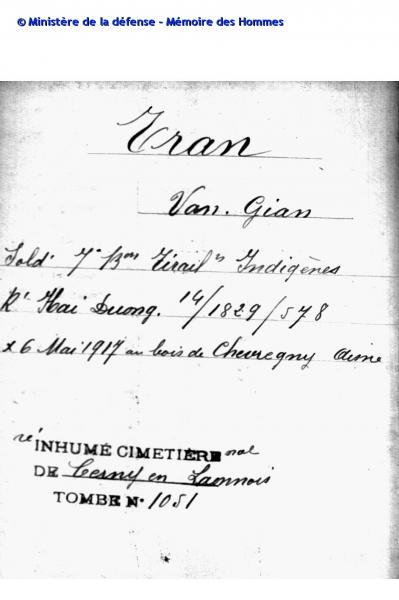 © Ministère de la défense - Mémoire des Hommes
Tran
Van. Gian
Sold. 7e Bon Tirailrs Indigènes
Rt Hai Duong. 14/1829/578
x 6 Mai 1917 au bois de Chevregny Aisne
ré INHUMÉ CIMETIÈRE nal
DE Cerny en Laonnois
TOMBE N° 1051